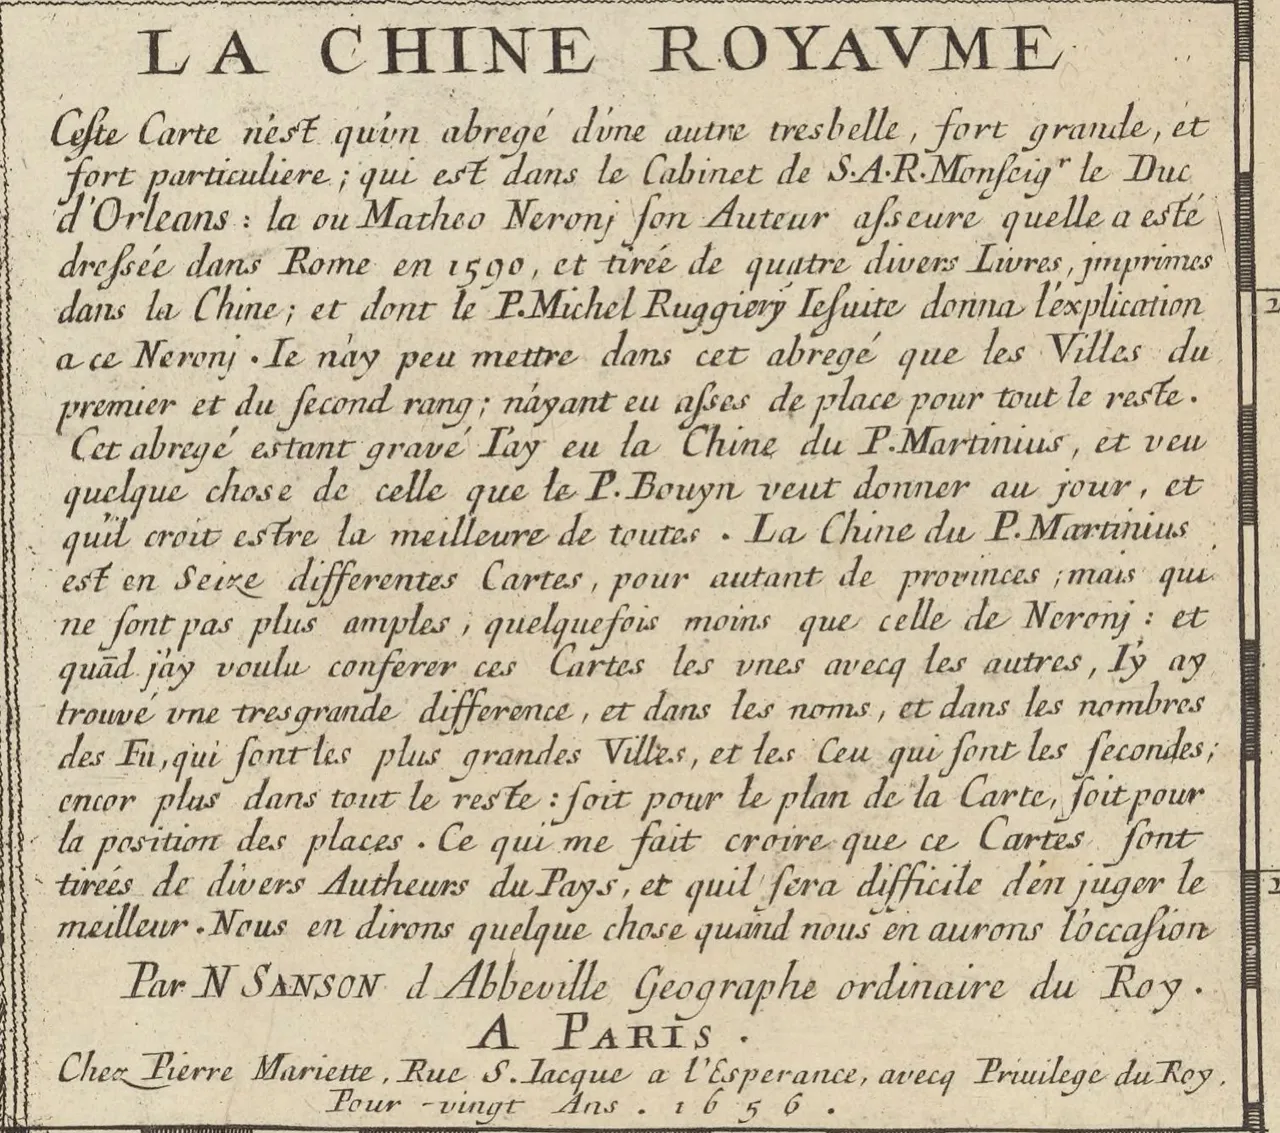 LA CHINE ROYAVME
Ceſte Carte n'est qu'vn abregé d'vne autre tresbelle, fort grande, et
fort particuliere; qui est dans le Cabinet de S.A.R. Monſeigr le Duc
d'Orleans: la ou Matheo Neronj ſon Auteur aſseure quelle a esté
dreſsée dans Rome en 1590, et tirée de quatre divers Livres, jmprimes
dans la Chine; et dont le P. Michel Ruggiery Ieſuite donna l'explication
a ce Neronj. Ie n'ay peu mettre dans cet abregé que les Villes du
premier et du ſecond rang; n'ayant eu aſses de place pour tout le reste.
Cet abregé estant gravé I'ay eu la Chine du P. Martinius, et veu
quelque chose de celle que le P. Bouyn veut donner au jour, et
qu'il croit estre la meilleure de toutes. La Chine du P. Martinius
est en Seize differentes Cartes, pour autant de provinces; mais qui
ne ſont pas plus amples, quelquefois moins que celle de Neronj: et
quãd j'ay voulu conferer ces Cartes les vnes avecq les autres, I'y ay
trouvé vne tresgrande difference, et dans les noms, et dans les nombres
des Fu, qui ſont les plus grandes Villes, et les Ceu qui ſont les ſecondes;
encor plus dans tout le reste: ſoit pour le plan de la Carte, ſoit pour
la position des places. Ce qui me fait croire que ce Cartes ſont
tireés de divers Autheurs du Pays, et quil ſera difficile d'en juger le
meilleur. Nous en dirons quelque chose quand nous en aurons l'occaſion
Par N SANSON d Abbeville Geographe ordinaire du Roy.
A PARIS.
Chez Pierre Mariette, Rue S. Iacque a l'Esperance, avecq Privilege du Roy,
Pour vingt Ans. 1656.
2
2